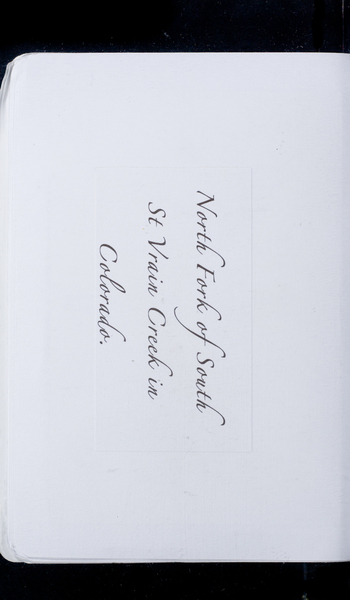 North Fork of South
St Vrain Creek in
Colorado.